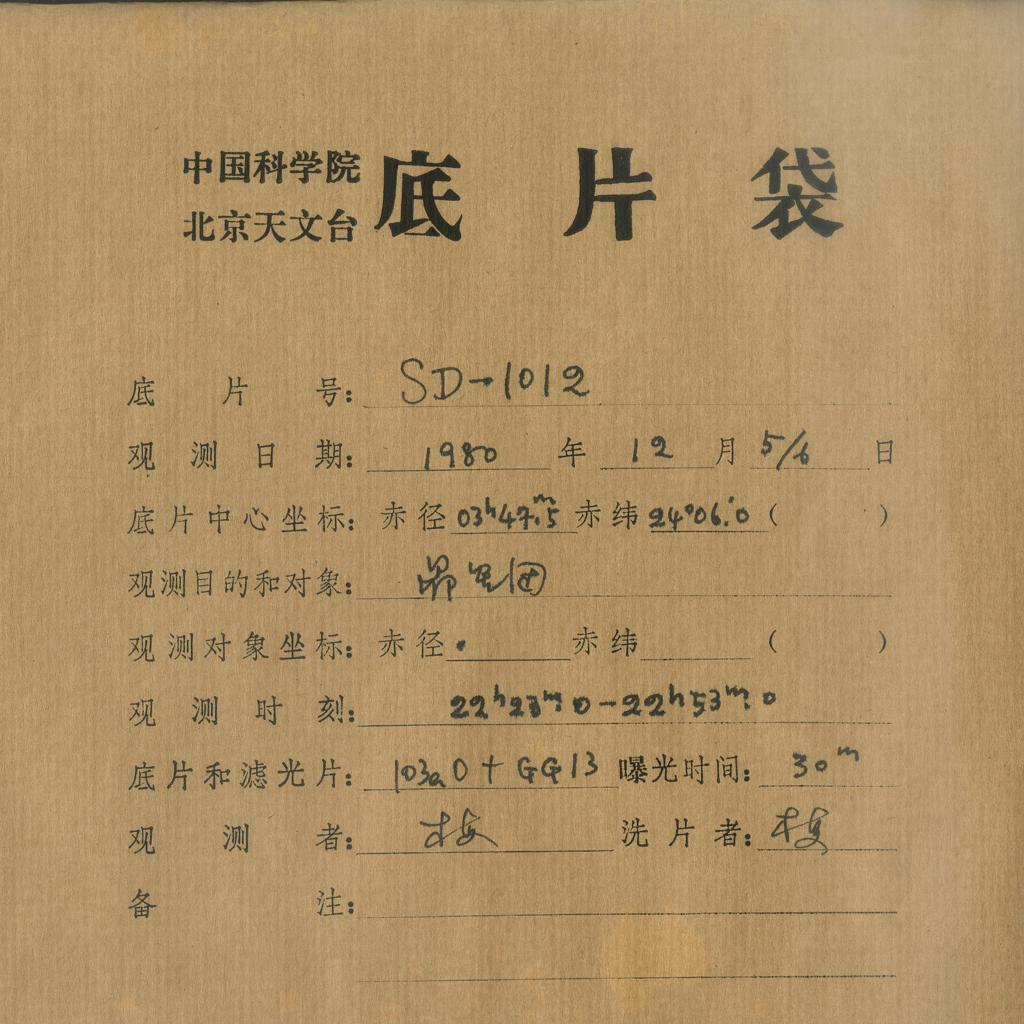 中国科学院
北京天文台 底片袋
底片号: SD-1012
观测日期: 1980 年 12 月 5/6 日
底片中心坐标: 赤径 03ʰ47ᵐ.5 赤纬 24°06'.0 ( )
观测目的和对象: 昴星团
观测对象坐标: 赤径 赤纬 ( )
观测时刻: 22ʰ23ᵐ.0-22ʰ53ᵐ.0
底片和滤光片: 103aO+GG13 曝光时间: 30ᵐ
观测者: 洗片者:
备注: